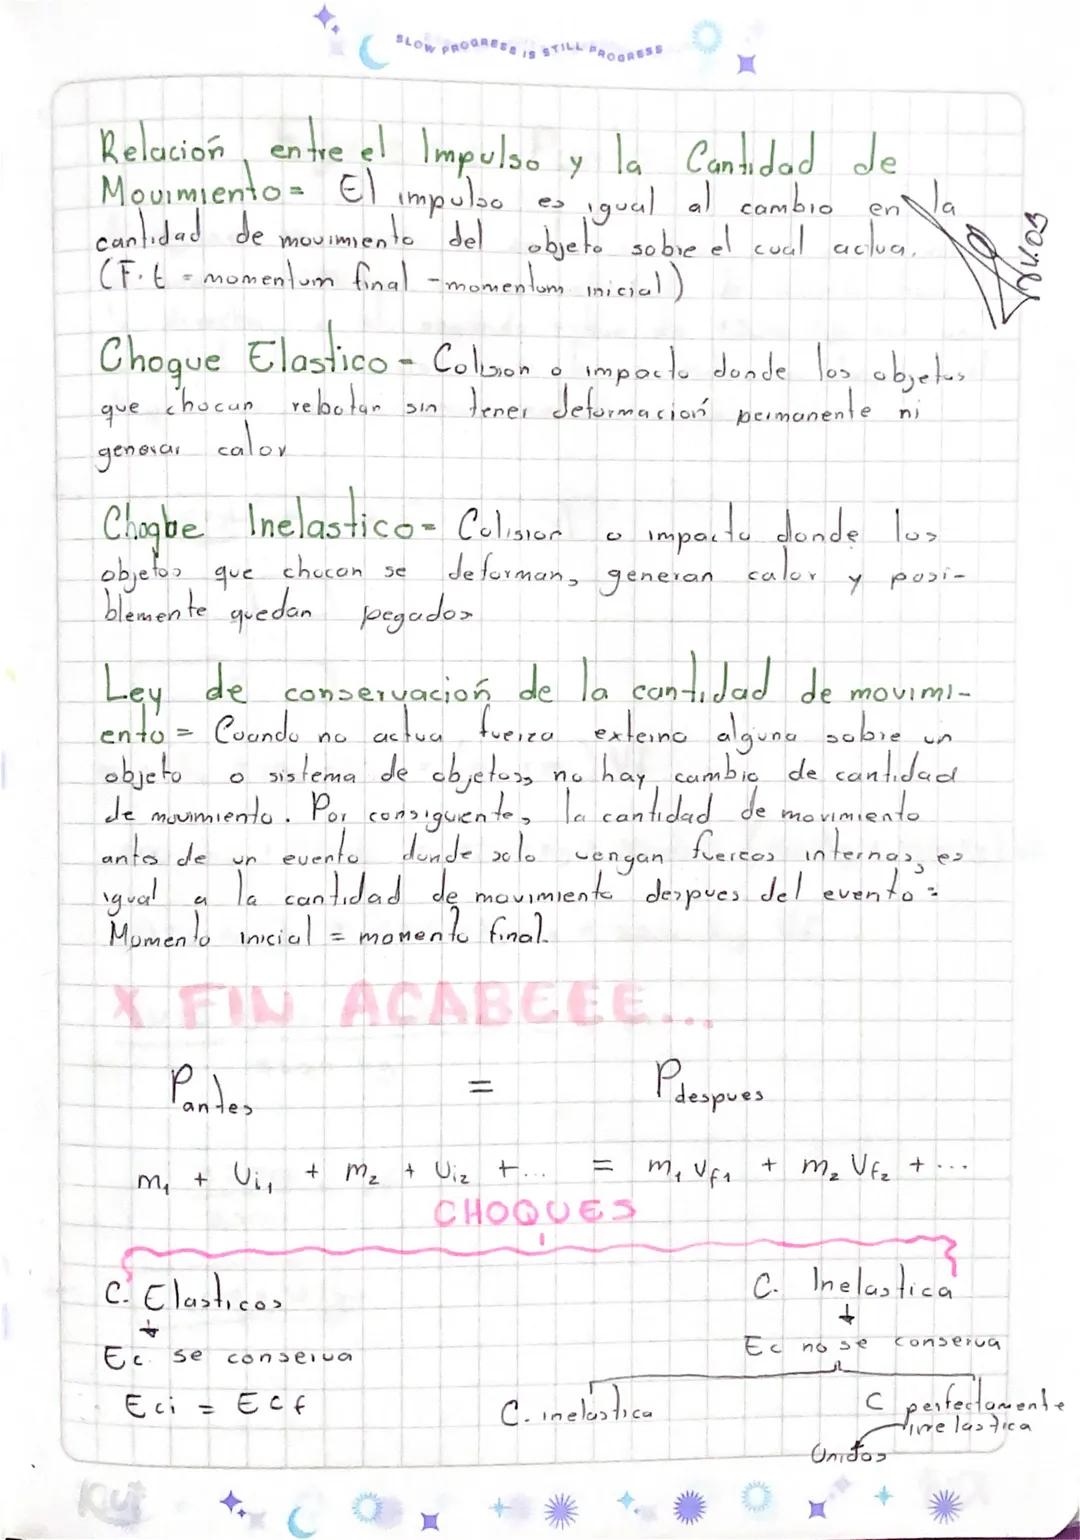 SLOW PROGRESS IS STILL PROGRESS
Relación entre el Impulso y la Cantidad de
Movimiento = El impulso es igual al cambio en la
cantidad de movimiento del objeto sobre el cual actua.
(F. t = momentum final - momentum inicial)
Choque Elastico = Colision o impacto donde los objetos
que chocan rebotan sin tener deformación permanente ni
generar calor
Choque Inelastico = Colision o impacto donde los
objetos que chocan se deforman, generan calor y posi-
blemente quedan pegados
Ley de conservación de la cantidad de movimi-
ento = Cuando no actua fuerza externa alguna sobre un
objeto o sistema de objetos, no hay cambio de cantidad
de movimiento. Por consiguiente, la cantidad de movimiento
antes de un evento donde solo vengan fuercas internas, es
igual a la cantidad de movimiento despues del evento =
Momento inicial = momento final.
X FIN ACABEEE...
Pantes = Pdespues
m₁ + Vi₁ + m₂ + Vi₂ + ... = m₁ Vf₁ + m₂ Vf₂ + ...
CHOQUES
C. Elasticos C. Inelastica
Ec. se conserva Ec no se conserva
Eci = Ecf C. inelastica C perfectamente
inelastica
Unidos